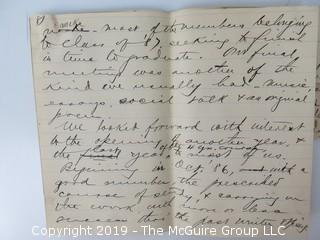 most of the members belonging
to class of 87, seeking to finish
in time to graduate. Our final
meeting was another of the
kind we usually had - music,
essays, social talk & an original
poem.
We looked forward with interest
to the opening of another year, &
the last year of the to most of us.
Beginning in Oct. 86, with a
good number, the prescribed
course of study, & carrying on
the work with more or less
success thro' the past winter
© 2019 - The McGuire Group, LLC